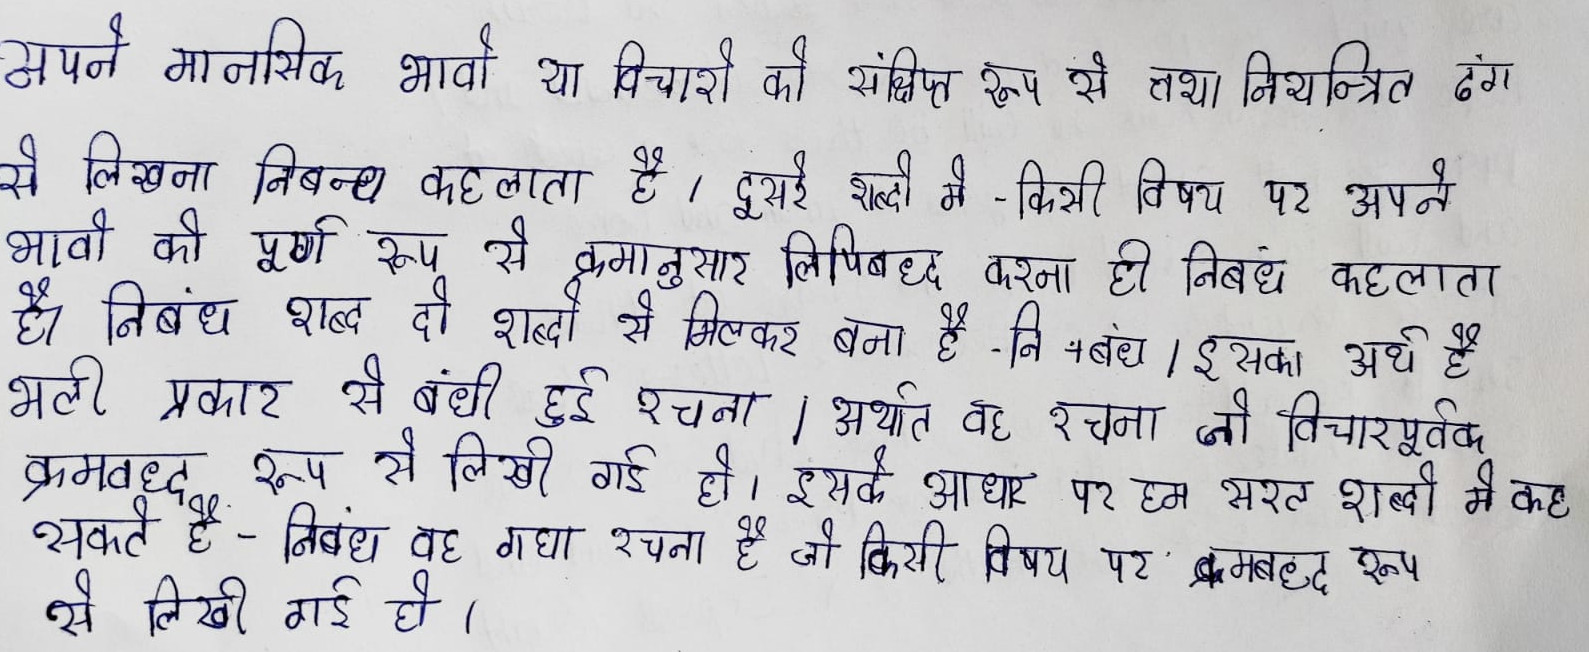 अपने मानसिक भावो या विचारो को संक्षिप्त रूप से तथा नियन्त्रित ढंग
से लिखना निबन्ध कहलाता है । दूसरे शब्दो मे - किसी विषय पर अपने
भावो को पूर्ण रूप से क्रमानुसार लिपिबध्द करना ही निबंध कहलाता
है। निबंध शब्द दो शब्दो से मिलकर बना है - नि + बंध । इसका अर्थ है
भली प्रकार से बंधी हुई रचना । अर्थात वह रचना जो विचारपूर्वक
क्रमवध्द रूप से लिखी गई हो। इसके आधार पर हम सरल शब्दो मे कह
सकते है - निबंध वह गघा रचना है जो किसी विषय पर क्रमबध्द रूप
से लिखी गई हो ।